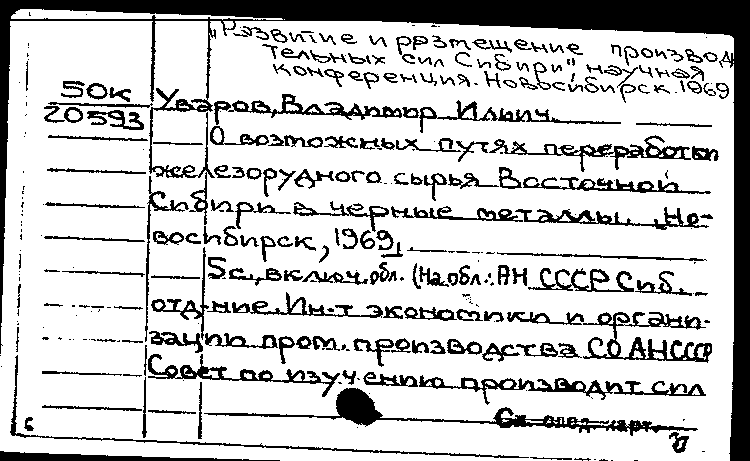 „Развитие и размещение производ
тельных сил Сибири", научная
конференция. Новосибирск. 1969
50к Уваров, Владимир Ильич.
20593
О возможных путях переработки
железорудного сырья Восточной
Сибири в черные металлы. „Но-
восибирск, 1969„.
5с., включ. обл. (На обл.: АН СССР Сиб.
отд-ние. Ин-т экономики и органи-
зации пром. производства СО АН СССР
Совет по изучению производит сил
См. след. карт.